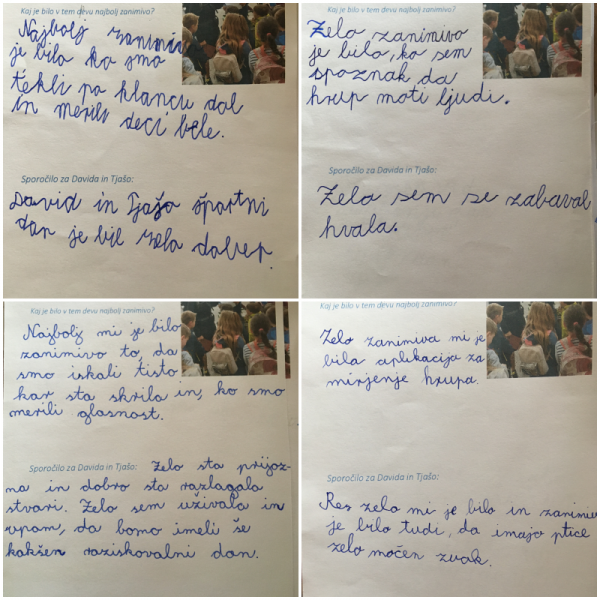 Kaj je bilo v tem devu najbolj zanimivo?
Najbolj zanimivo
je bilo ko smo
tekli po klancu dol
in merili deci bele.
Sporočilo za Davida in Tjašo:
David in Tjaša športni
dan je bil zelo dober.
Kaj je bilo v tem devu najbolj zanimivo?
Zelo zanimivo
je bilo, ko sem
spoznak da
hrup moti ljudi.
Sporočilo za Davida in Tjašo:
Zelo sem se zabaval
hvala.
Kaj je bilo v tem devu najbolj zanimivo?
Najbolj mi je bilo
zanimivo to, da
smo iskali tisto
kar sta skrila in, ko smo
merili glasnost.
Sporočilo za Davida in Tjašo: Zelo sta prijaz-
na in dobro sta razlagala
stvari. Zelo sem uživala in
upam, da bomo imeli še
kakšen raziskovalni dan.
Kaj je bilo v tem devu najbolj zanimivo?
Zelo zanimiva mi je
bila aplikacija za
mirjenje hrupa.
Sporočilo za Davida in Tjašo:
Res zelo mi je bilo in zanimivo
je bilo tudi, da imajo ptice
zelo močen zvok.